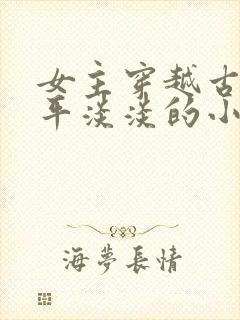 女主穿越古
平淡淡的小
海夢長情